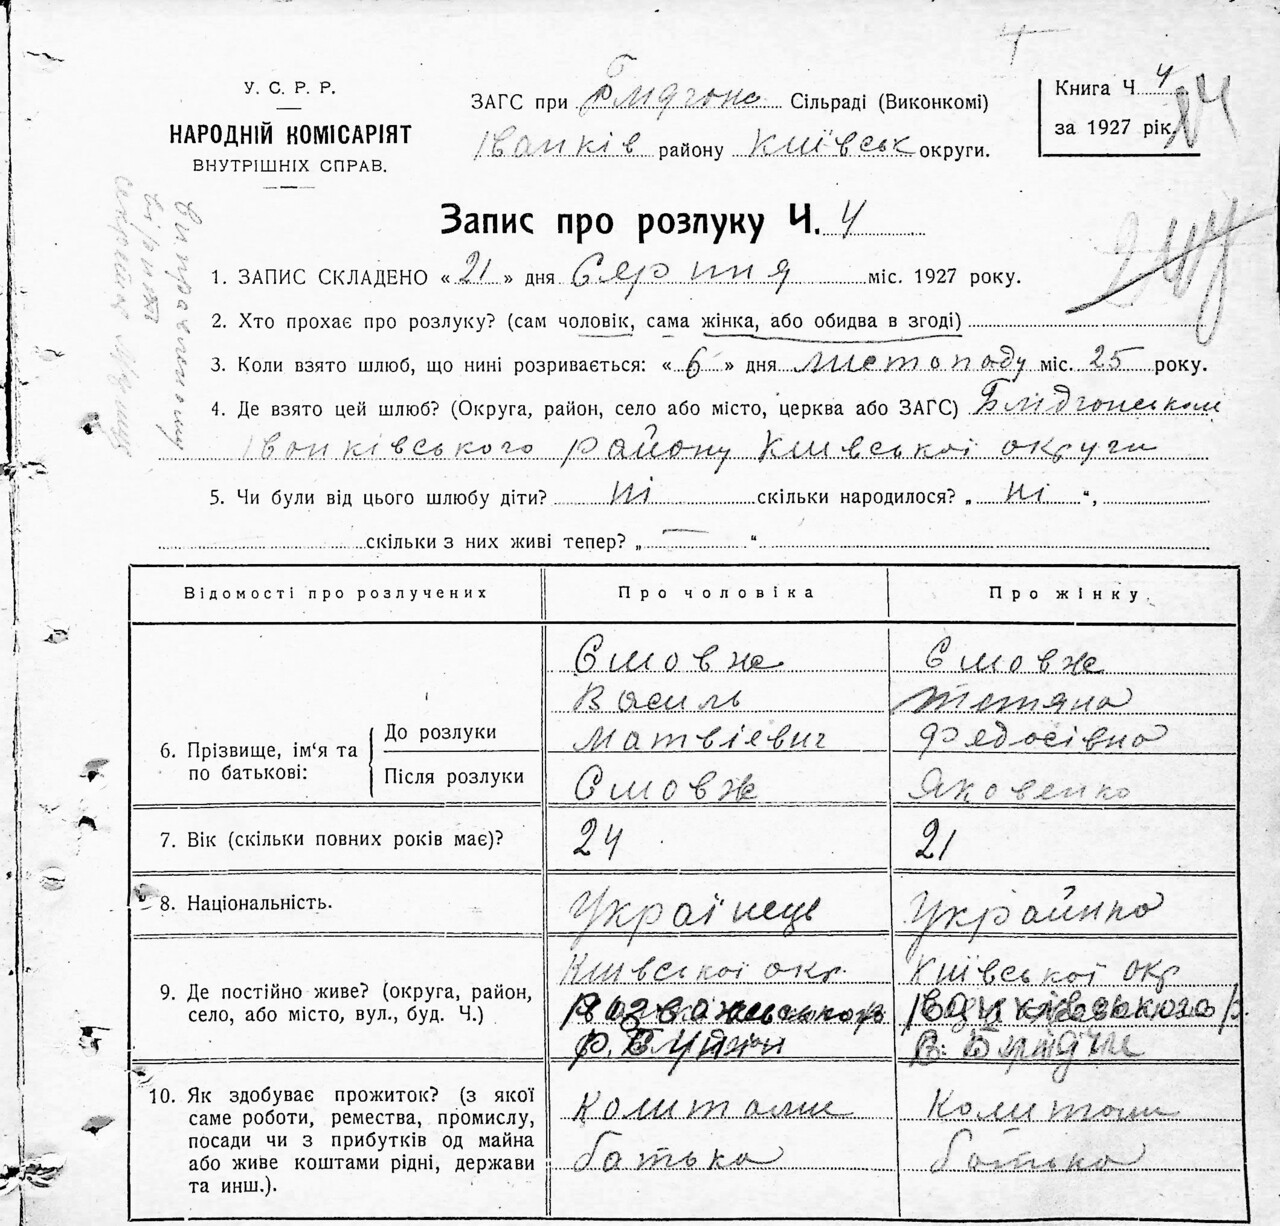 У. С. Р. Р.
НАРОДНІЙ КОМІСАРІЯТ
ВНУТРІШНІХ СПРАВ.
ЗАГС при Сільраді (Виконкомі)
Іванків району Київськ округи.
Книга Ч 4
за 1927 рік.
24
Виправленному
вірити
секретар
Запис про розлуку Ч. 4
244
1. ЗАПИС СКЛАДЕНО «21» дня Серпня міс. 1927 року.
2. Хто прохає про розлуку? (сам чоловік, сама жінка, або обидва в згоді)
3. Коли взято шлюб, що нині розривається: «6» дня листопаду міс. 25 року.
4. Де взято цей шлюб? (Округа, район, село або місто, церква або ЗАГС)
Іванківського району Київської округи
5. Чи були від цього шлюбу діти? ні скільки народилося? „ ні “,
скільки з них живі тепер? „ — “
Відомості про розлучених Про чоловіка Про жінку
6. Прізвище, ім'я та по батькові: До розлуки Після розлуки
Ємовж Ємовж
Василь Тетяна
Матвієвич Федосівна
Ємовж Яковенко
7. Вік (скільки повних років має)? 24 21
8. Національність. Українець Українка
9. Де постійно живе? (округа, район,
село, або місто, вул., буд. Ч.)
Київської окр. Київської окр
Розважівського р Іванківського р.
10. Як здобуває прожиток? (з якої
саме роботи, ремества, промислу,
посади чи з прибутків од майна
або живе коштами рідні, держави
та инш.).
Колитами Колитами
батька батька